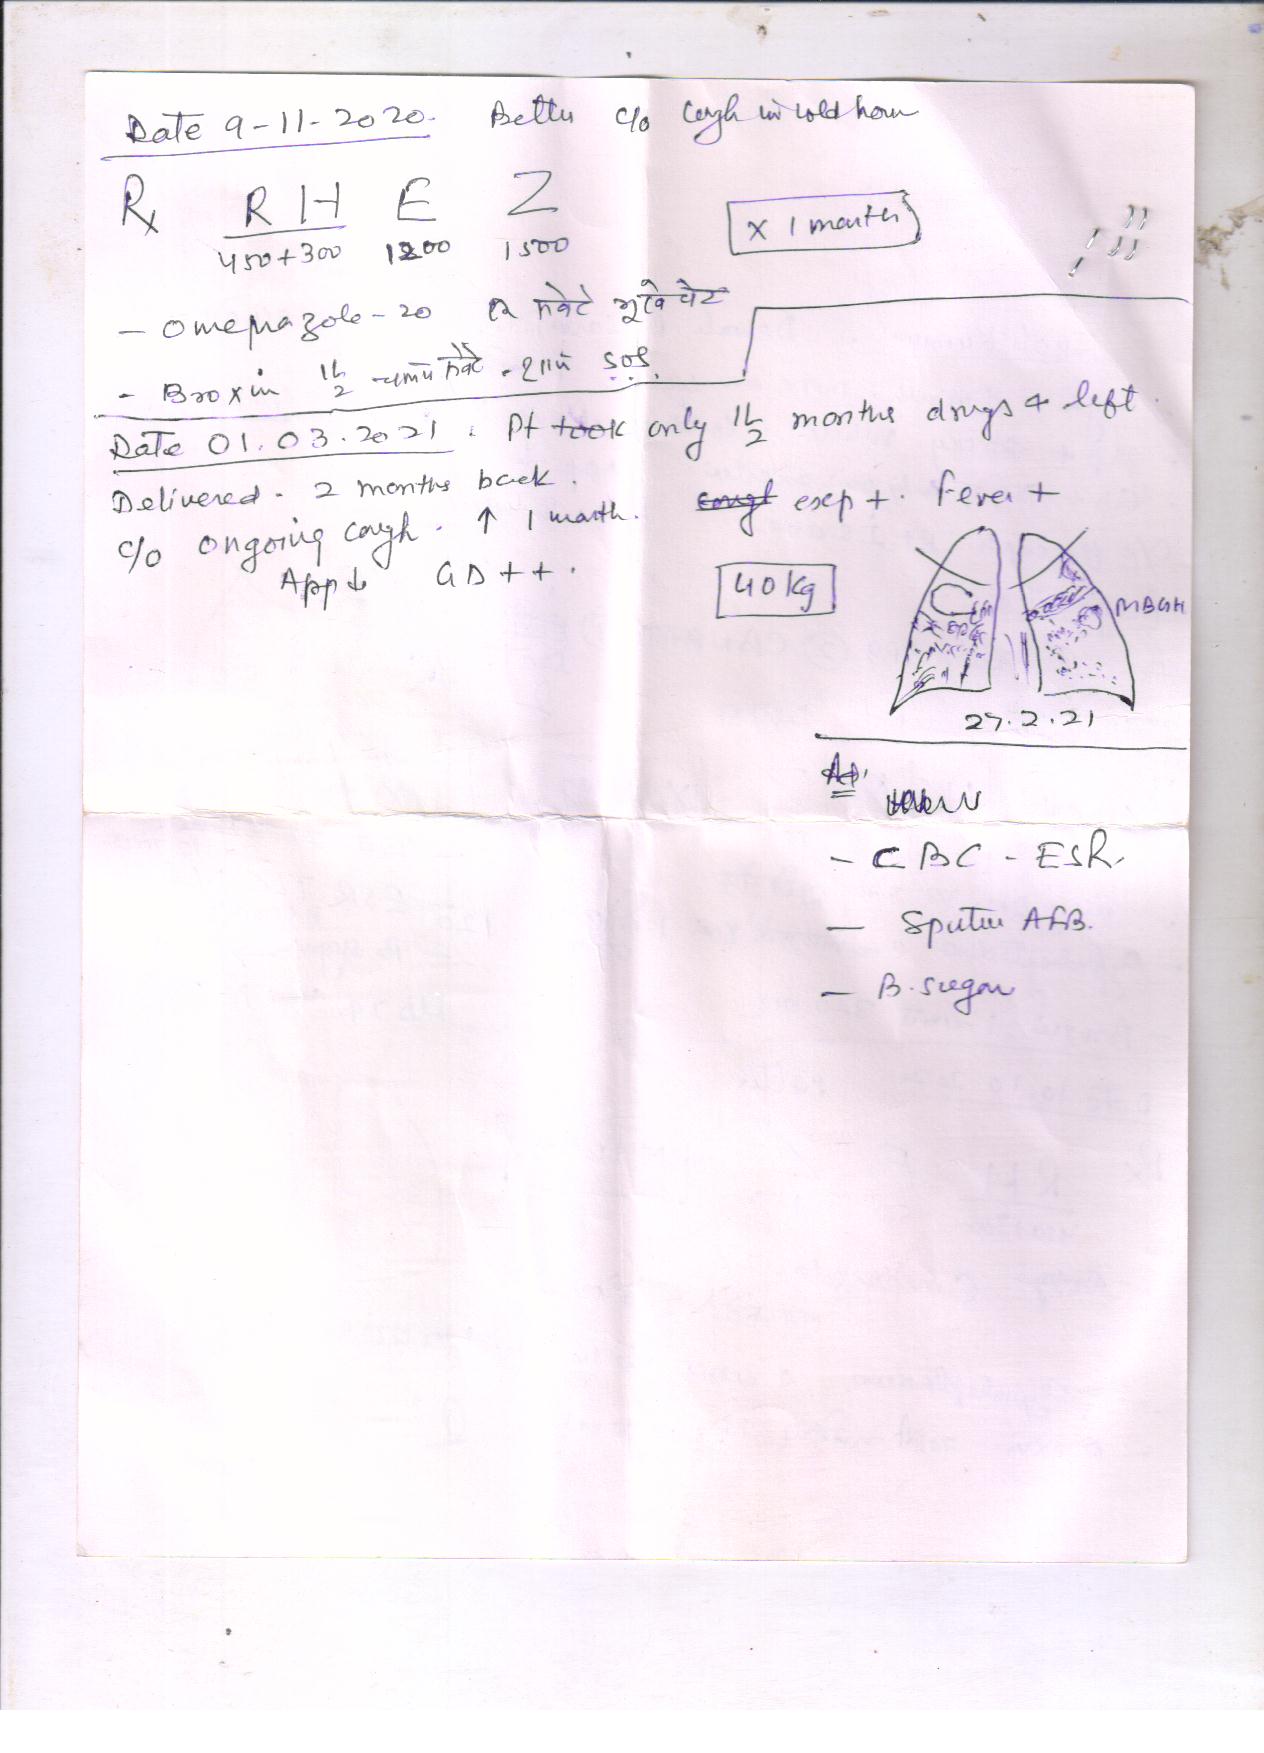 Date 9-11-2020. Better c/o Cough in cold hours
Rx R H E Z
450+300 1200 1500
x 1 month
- Omeprazole - 20 सवेरे भूखे पेट
- Broxin 1½ चम्मच सवेरे - शाम SOS
Date 01.03.2021. Pt took only 1½ months drugs & left.
Delivered - 2 months back.
c/o Ongoing cough. ↑ 1 month. exep +. fever +
App↓ GD ++.
40 Kg
MBGH
27.2.21
- CBC - ESR.
- Sputum AFB.
- B. sugar